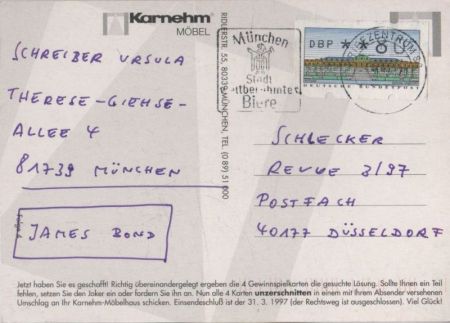 Karnehm
MÖBEL
SCHREIBER URSULA
THERESE-GIEHSE-
ALLEE 4
81739 MÜNCHEN
JAMES BOND
RIDLERSTR. 55, 80339 MÜNCHEN, TEL (0 89) 51 000
München
Stadt
weltberühmter
Biere
DBP
80
DEUTSCHE BUNDESPOST
BRIEFZENTRUM 8
SCHLECKER
REVUE 3/97
POSTFACH
40177 DÜSSELDORF
Jetzt haben Sie es geschafft! Richtig übereinandergelegt ergeben die 4 Gewinnspielkarten die gesuchte Lösung. Sollte Ihnen ein Teil
fehlen, setzen Sie den Joker ein oder fordern Sie ihn an. Nun alle 4 Karten unzerschnitten in einem mit Ihrem Absender versehenen
Umschlag an Ihr Karnehm-Möbelhaus schicken. Einsendeschluß ist der 31. 3. 1997 (der Rechtsweg ist ausgeschlossen). Viel Glück!